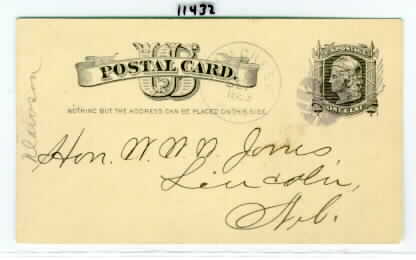 11432
U.S.
POSTAL CARD.
NOTHING BUT THE ADDRESS CAN BE PLACED ON THIS SIDE.
ONE CENT
Dawson
Hon. W. W. W. Jones
Lincoln,
Neb.